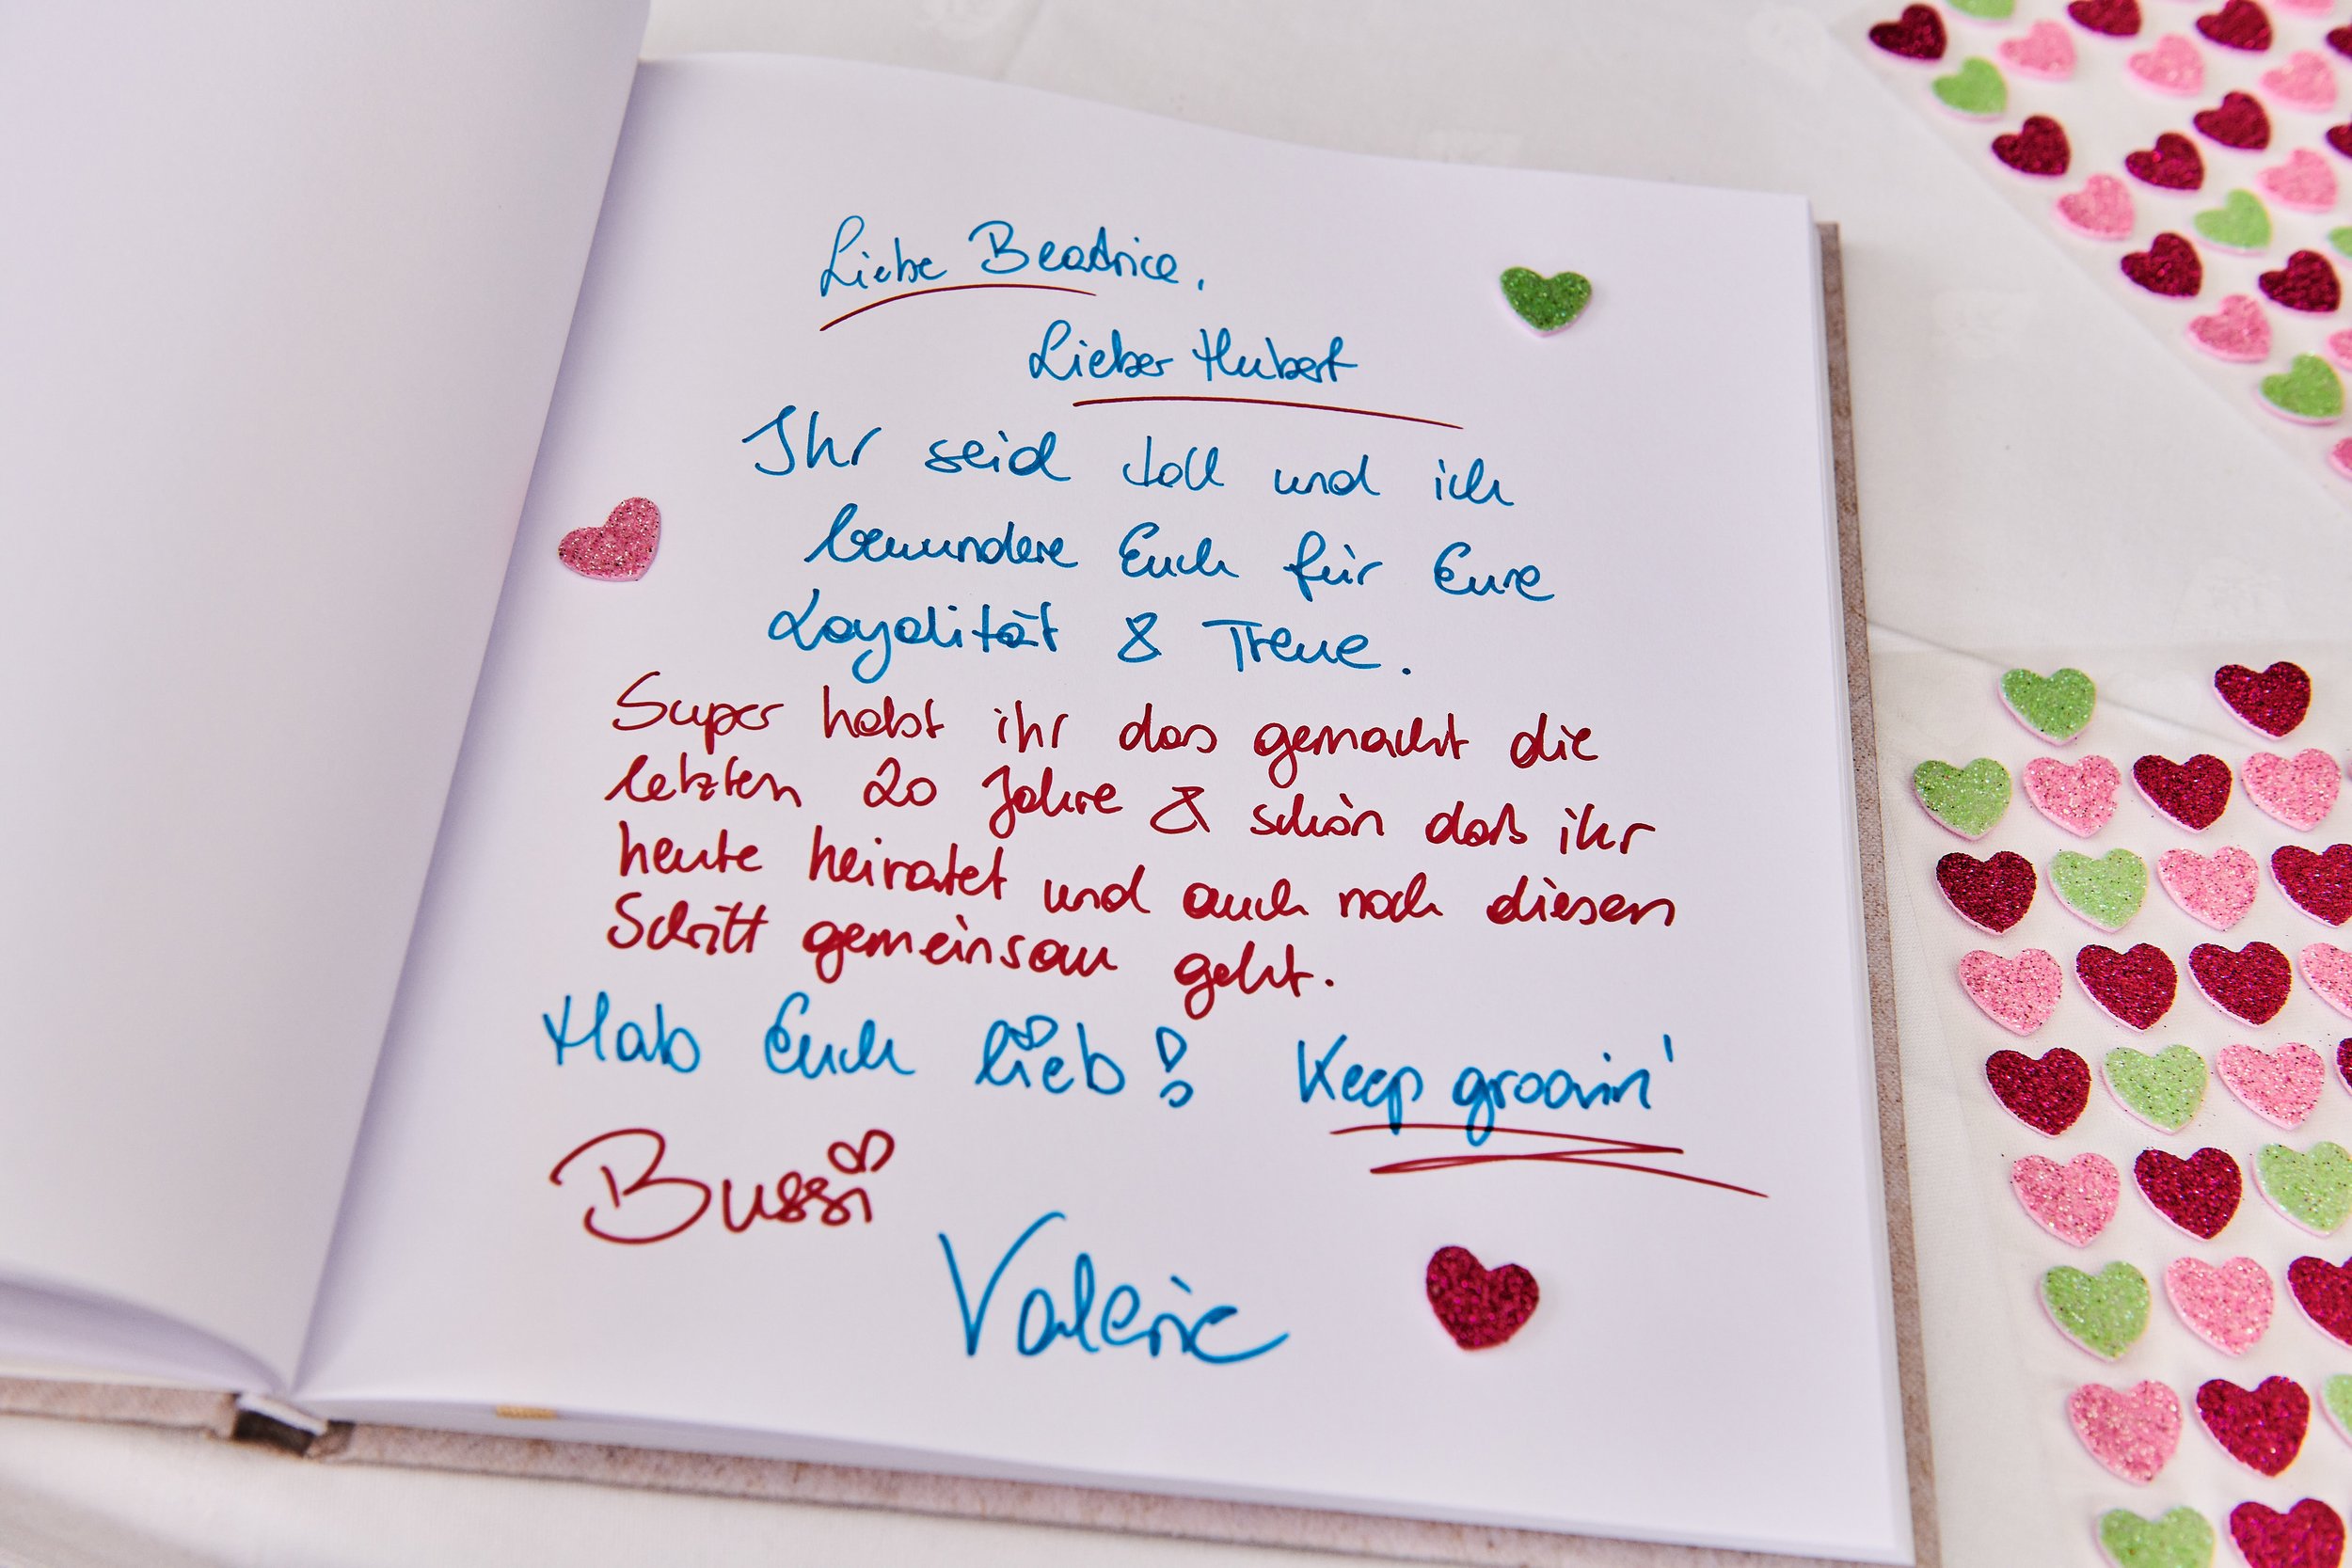 Liebe Beatrice,
Lieber Hubert
Ihr seid toll und ich
bewundere Euch für Eure
Loyalität & Treue.
Super habt ihr das gemacht die
letzten 20 Jahre & schön daß ihr
heute heiratet und auch noch diesen
Schritt gemeinsam geht.
Hab Euch lieb! Keep groovin'
Bussi
Valerie